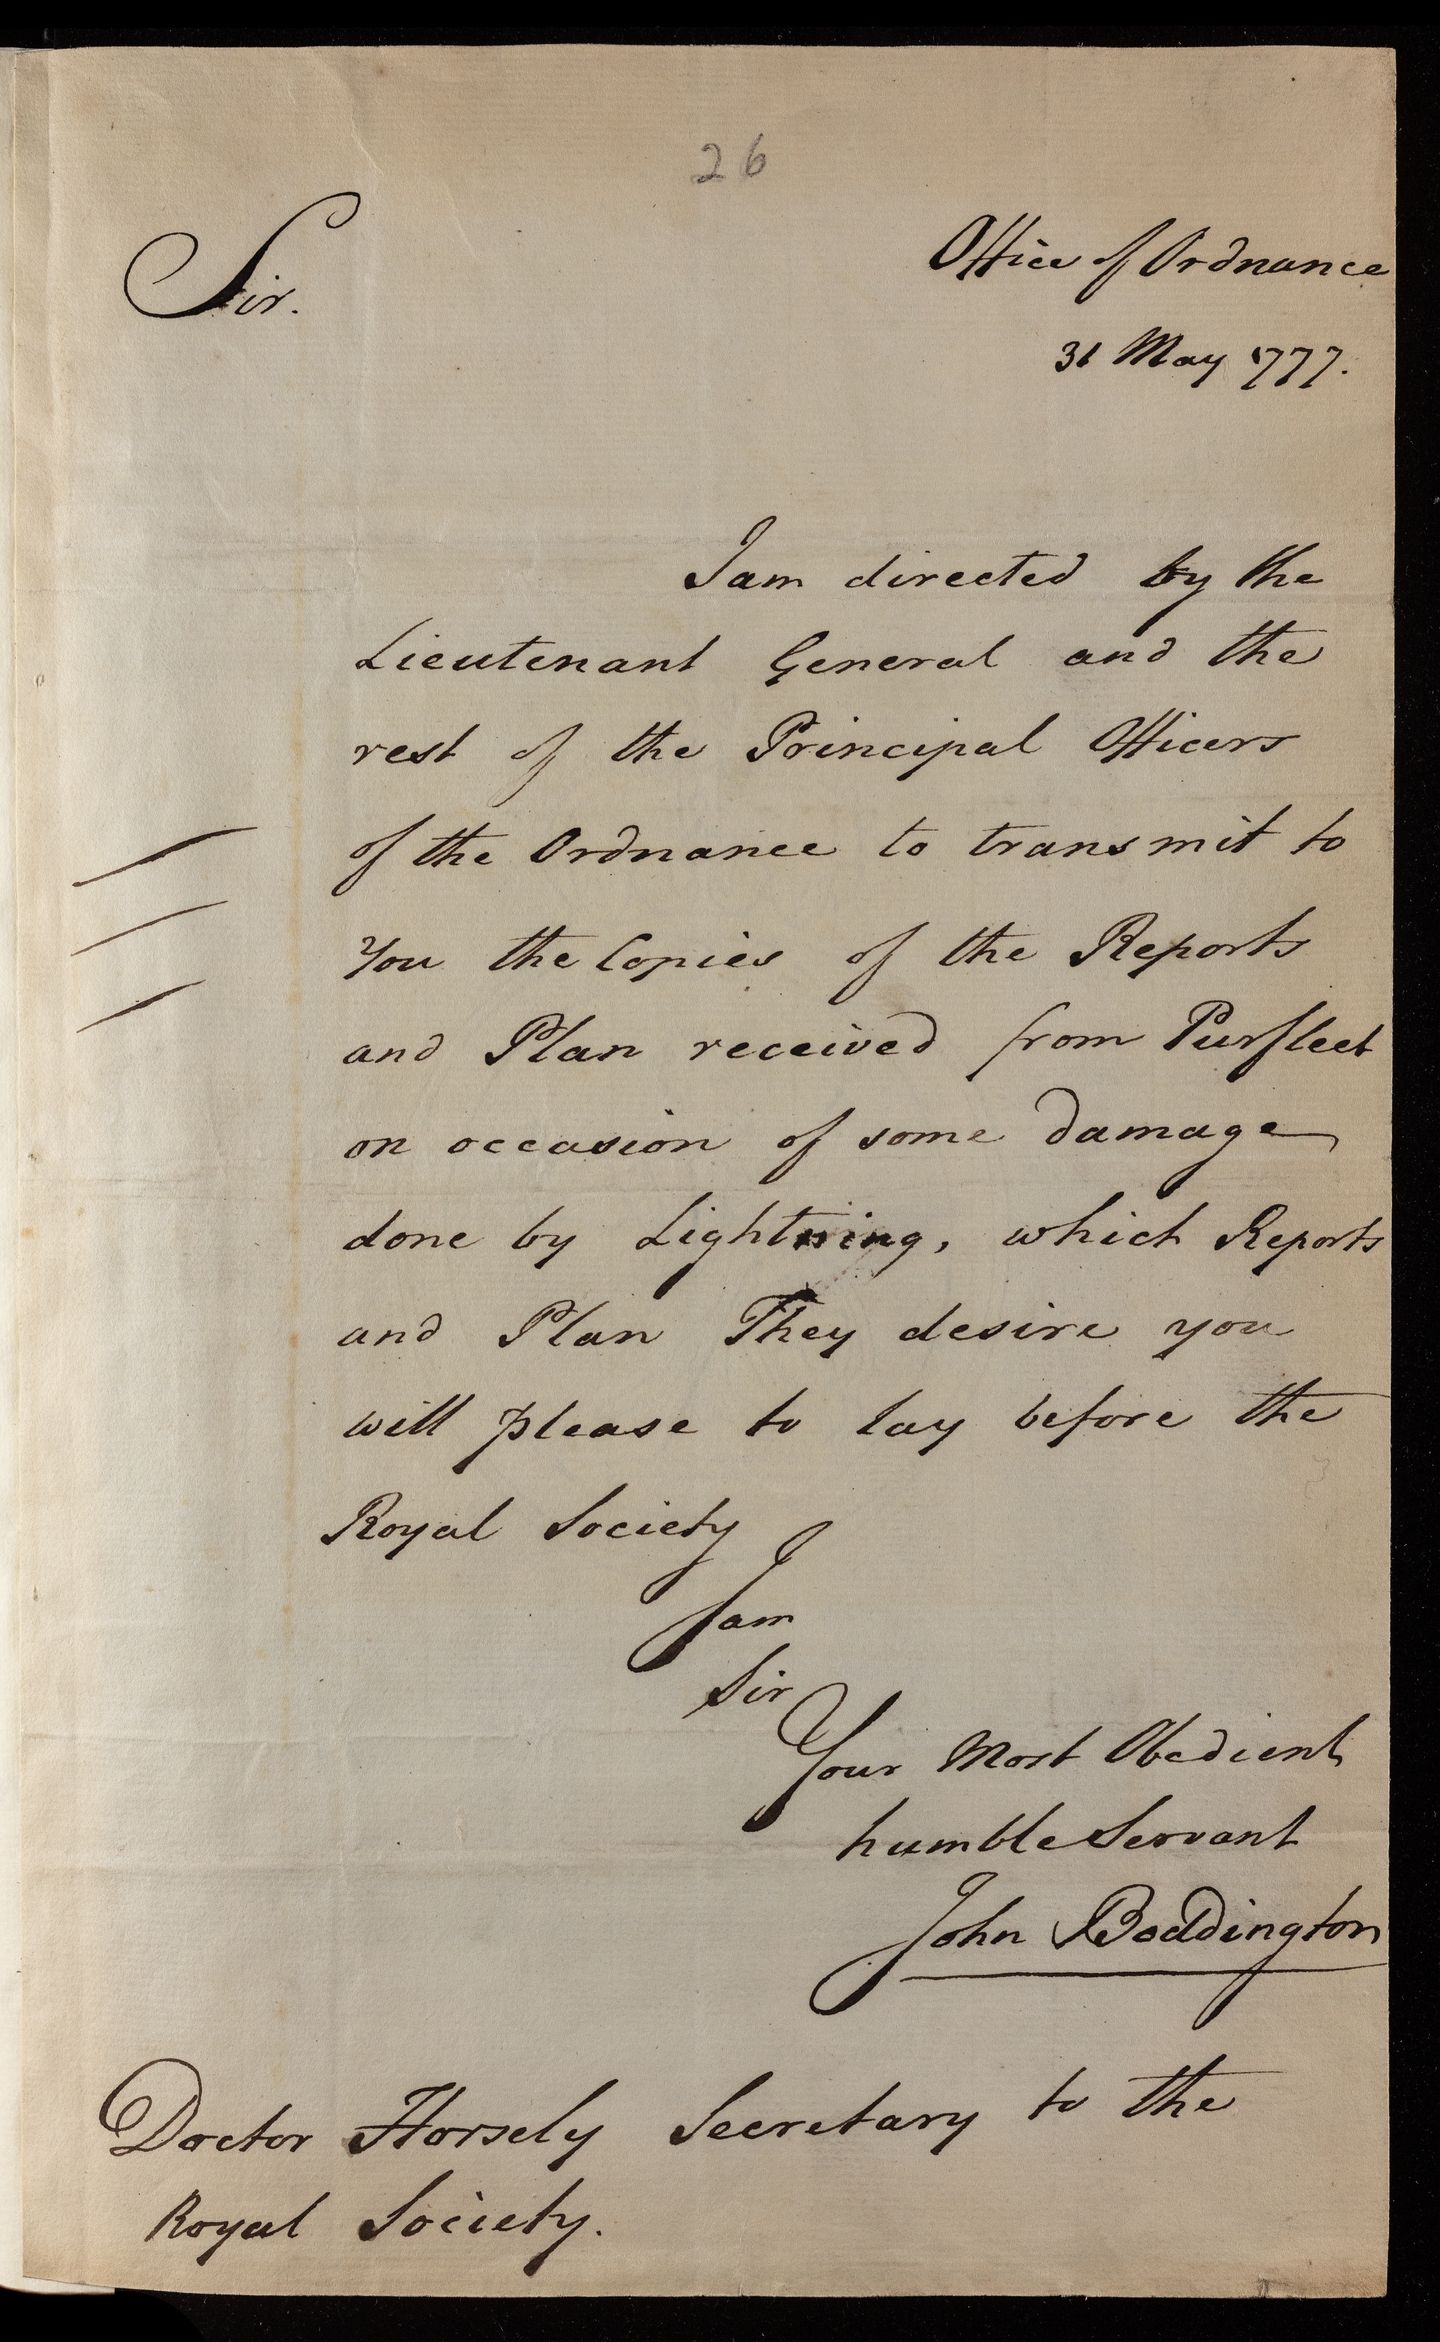 26
Sir.
Office of Ordnance
31 May 1777.
I am directed by the
Lieutenant General and the
rest of the Principal Officers
of the Ordnance to transmit to
You the Copies of the Reports
and Plan received from Purfleet
on occasion of some damage
done by Lightning, which Reports
and Plan They desire you
will please to lay before the
Royal Society
I am
Sir
Your Most Obedient
humble Servant
John Boddington
Doctor Horsely Secretary to the
Royal Society.